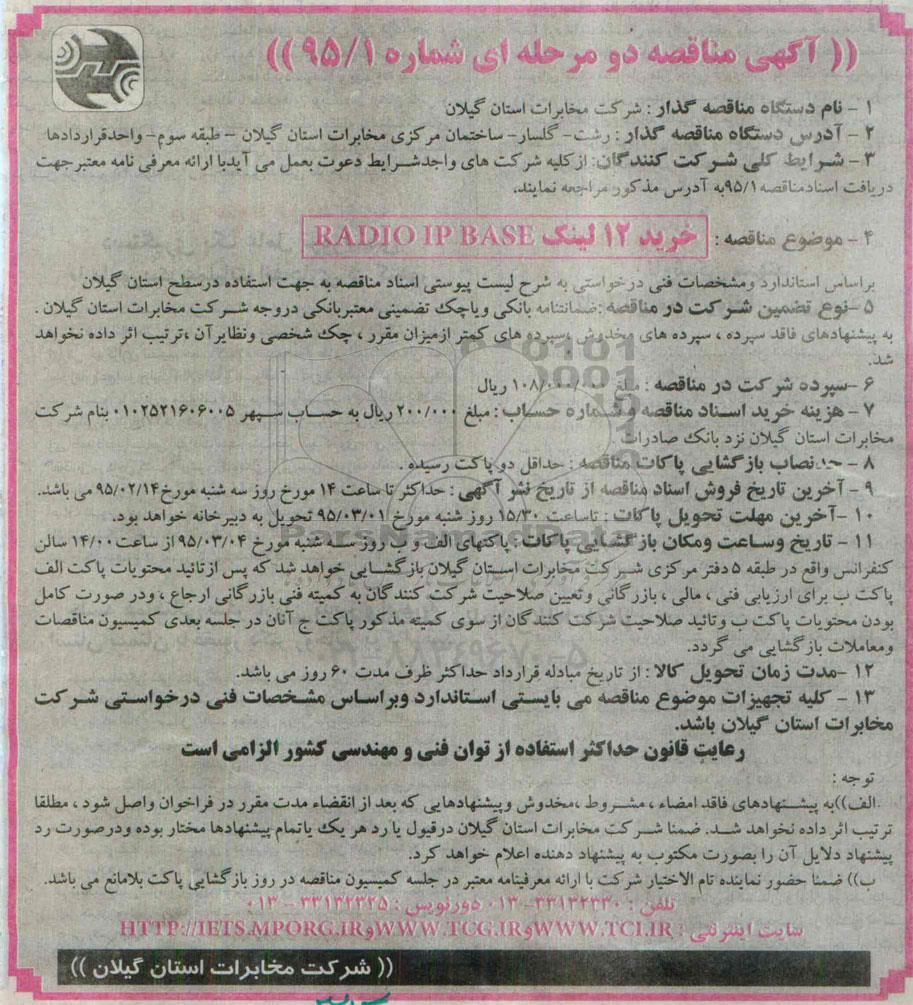 (( آگهی مناقصه دو مرحله ای شماره ۹۵/۱ ))
۱ - نام دستگاه مناقصه گذار : شرکت مخابرات استان گیلان
۲ - آدرس دستگاه مناقصه گذار : رشت- گلسار- ساختمان مرکزی مخابرات استان گیلان - طبقه سوم- واحدقراردادها
۳ - شرایط کلی شرکت کنندگان: ازکلیه شرکت های واجدشرایط دعوت بعمل می آیدبا ارائه معرفی نامه معتبرجهت
دریافت اسنادمناقصه۹۵/۱به آدرس مذکور مراجعه نمایند.
۴ - موضوع مناقصه : خرید ۱۲ لینک RADIO IP BASE
براساس استاندارد ومشخصات فنی درخواستی به شرح لیست پیوستی اسناد مناقصه به جهت استفاده درسطح استان گیلان
۵ -نوع تضمین شرکت در مناقصه :ضمانتنامه بانکی ویاچک تضمینی معتبربانکی دروجه شرکت مخابرات استان گیلان .
به پیشنهادهای فاقد سپرده ، سپرده های مخدوش ،سپرده های کمتر ازمیزان مقرر ، چک شخصی ونظایرآن ،ترتیب اثر داده نخواهد
شد.
۶ -سپرده شرکت در مناقصه : مبلغ ۱۰۸/۰۰۰/۰۰۰ ریال
۷ - هزینه خرید اسناد مناقصه و شماره حساب : مبلغ ۲۰۰/۰۰۰ ریال به حساب سپهر ۰۱۰۲۵۲۱۶۰۶۰۰۵ بنام شرکت
مخابرات استان گیلان نزد بانک صادرات .
۸ - حدنصاب بازگشایی پاکات مناقصه : حداقل دو پاکت رسیده .
۹ - آخرین تاریخ فروش اسناد مناقصه از تاریخ نشر آگهی : حداکثر تا ساعت ۱۴ مورخ روز سه شنبه مورخ۹۵/۰۲/۱۴ می باشد.
۱۰ -آخرین مهلت تحویل پاکات : تاساعت ۱۵/۳۰ روز شنبه مورخ ۹۵/۰۳/۰۱ تحویل به دبیرخانه خواهد بود.
۱۱ - تاریخ وساعت ومکان بازگشایی پاکات : پاکتهای الف و ب روز سه شنبه مورخ ۹۵/۰۳/۰۴ از ساعت ۱۴/۰۰ سالن
کنفرانس واقع در طبقه ۵ دفتر مرکزی شرکت مخابرات استان گیلان بازگشایی خواهد شد که پس ازتائید محتویات پاکت الف
پاکت ب برای ارزیابی فنی ، مالی ، بازرگانی وتعیین صلاحیت شرکت کنندگان به کمیته فنی بازرگانی ارجاع ، ودر صورت کامل
بودن محتویات پاکت ب وتائید صلاحیت شرکت کنندگان از سوی کمیته مذکور پاکت ج آنان در جلسه بعدی کمیسیون مناقصات
ومعاملات بازگشایی می گردد.
۱۲ -مدت زمان تحویل کالا : از تاریخ مبادله قرارداد حداکثر ظرف مدت ۶۰ روز می باشد.
۱۳ - کلیه تجهیزات موضوع مناقصه می بایستی استاندارد وبراساس مشخصات فنی درخواستی شرکت
مخابرات استان گیلان باشد.
رعایت قانون حداکثر استفاده از توان فنی و مهندسی کشور الزامی است
توجه :
الف))به پیشنهادهای فاقد امضاء ، مشروط ،مخدوش وپیشنهادهایی که بعد از انقضاء مدت مقرر در فراخوان واصل شود ، مطلقا
ترتیب اثر داده نخواهد شد. ضمنا شرکت مخابرات استان گیلان درقبول یا رد هر یک یاتمام پیشنهادها مختار بوده ودرصورت رد
پیشنهاد دلایل آن را بصورت مکتوب به پیشنهاد دهنده اعلام خواهد کرد.
ب)) ضمنا حضور نماینده تام الاختیار شرکت با ارائه معرفینامه معتبر در جلسه کمیسیون مناقصه در روز بازگشایی پاکت بلامانع می باشد.
تلفن : ۳۳۱۳۲۳۳۰- ۰۱۳ دورنویس : ۳۳۱۳۲۳۳۵ - ۰۱۳
سایت اینترنتی : WWW.TCI.IRوWWW.TCG.IRوHTTP://IETS.MPORG.IR
(( شرکت مخابرات استان گیلان ))